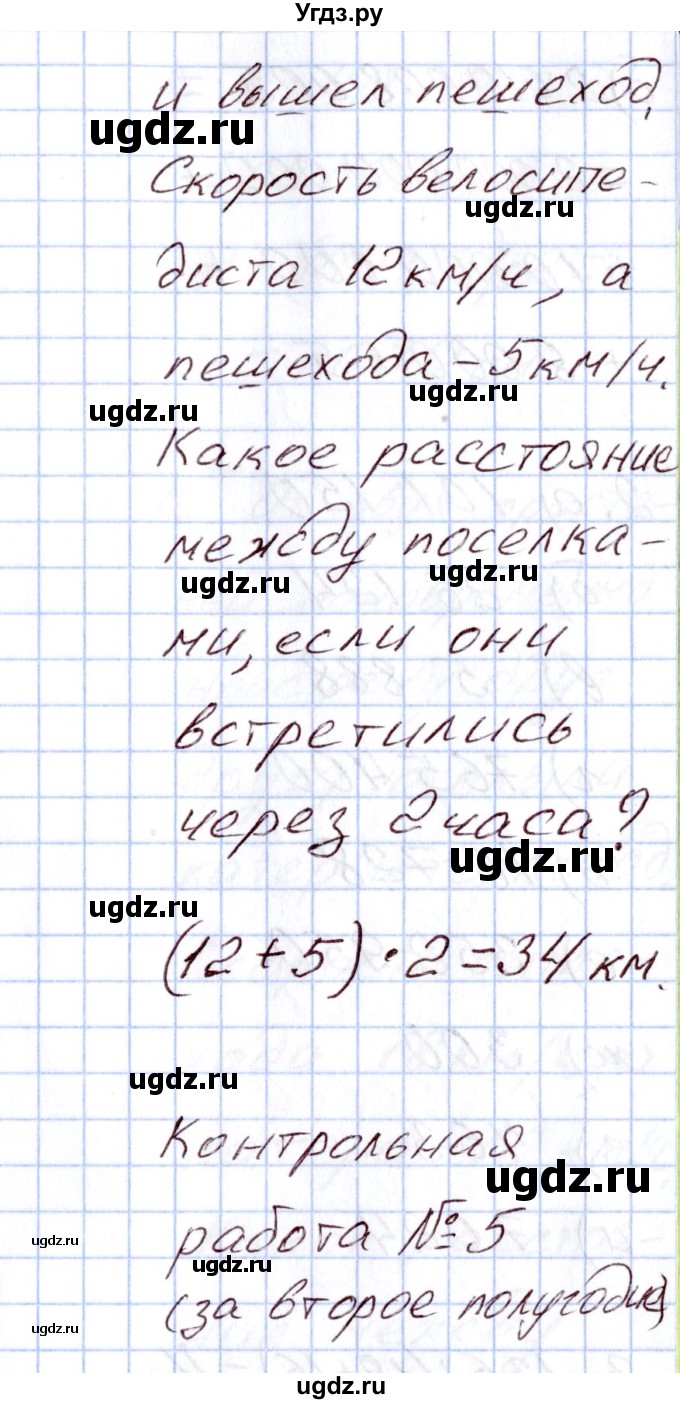 Угдз.ру
и вышел пешеход.
ugdz.ru
Скорость велосипе-
ugdz.ru
диста 12 км/ч, а
пешехода – 5 км/ч.
ugdz.ru
ugdz.ru
Какое расстояние
между поселка-
ugdz.ru
ugdz.ru
ми, если они
встретились
через 2 часа?
ugdz.ru
ugdz.ru
(12 + 5) · 2 = 34 км.
ugdz.ru
Контрольная
ugdz.ru
работа № 5
ugdz.ru
ugdz.ru
(за второе полугодие)
ugdz.ru
ugdz.ru